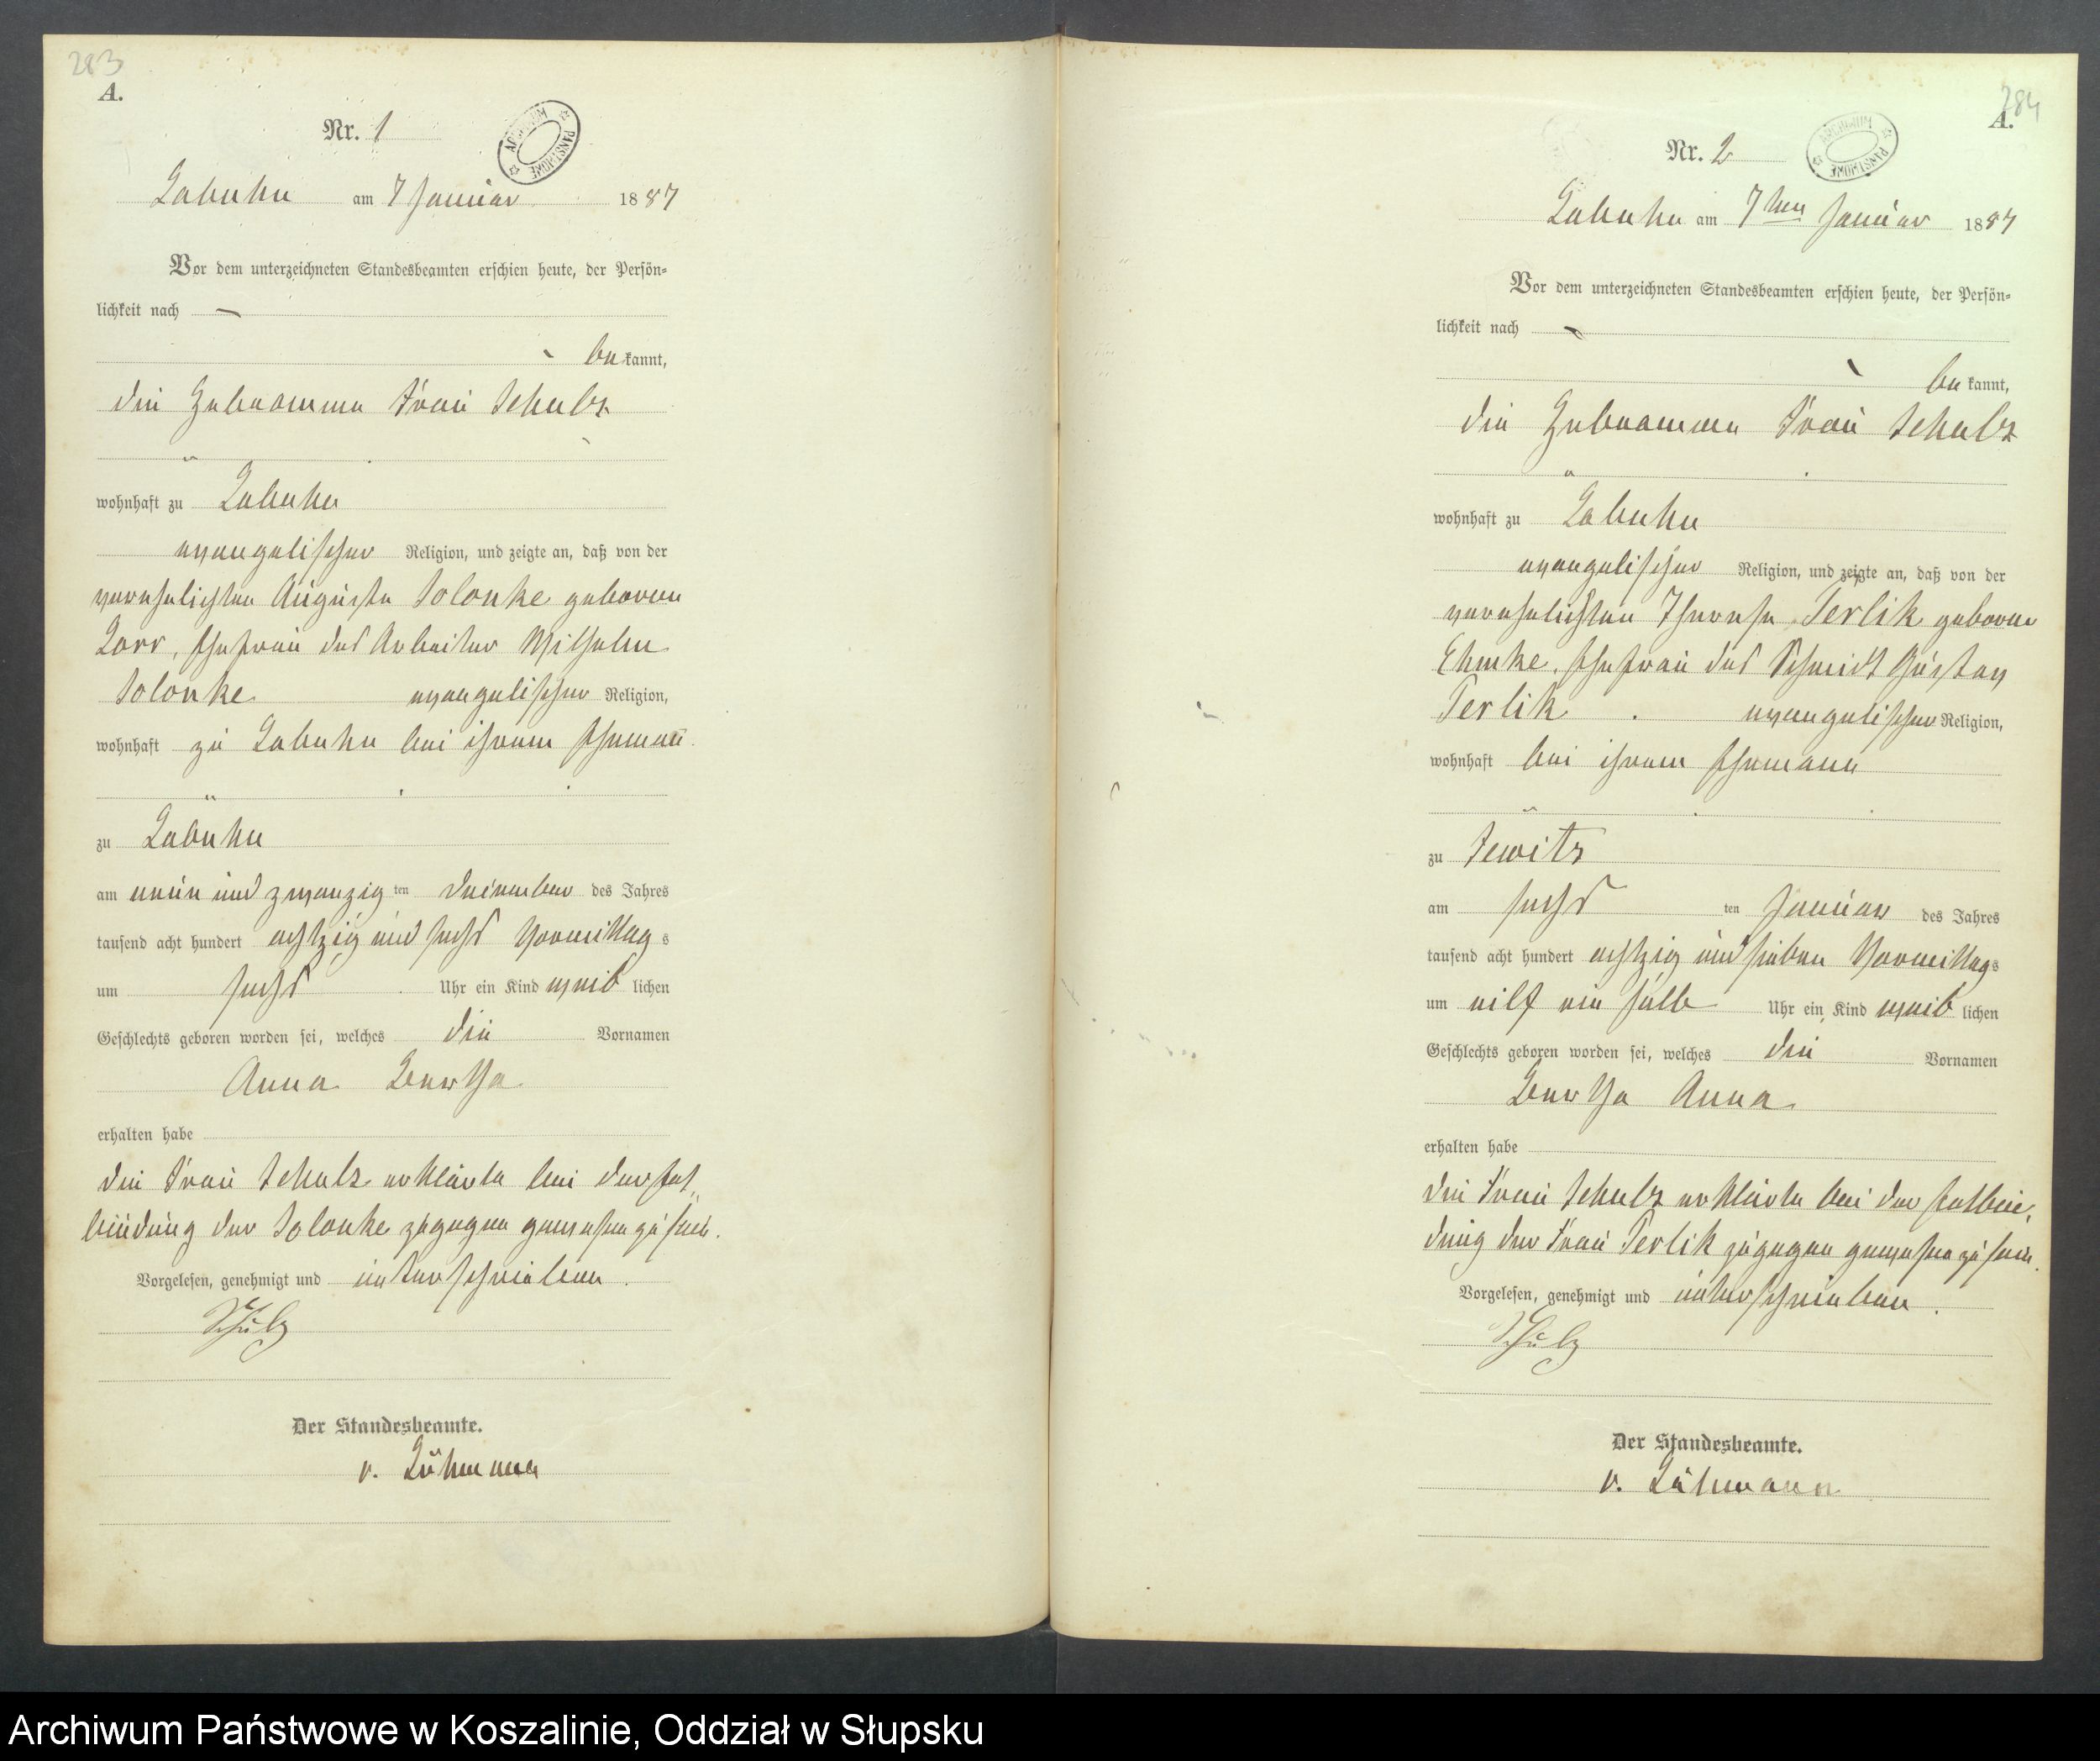 283
A.
Nr. 1
ARCHIWUM PAŃSTWOWE
Labuhn am 7 Januar 1887
Vor dem unterzeichneten Standesbeamten erschien heute, der Persön-
lichkeit nach
bekannt,
die Hebeamme Frau Schulz
wohnhaft zu Labuhn
evangelischer Religion, und zeigte an, daß von der
verehelichten Auguste Solonke geboren
Lorr, Ehefrau des Arbeiter Wilhelm
Solonke evangelischer Religion,
wohnhaft zu Labuhn bei ihrem Ehemann
zu Labuhn
am neun und zwanzig ten Dezember des Jahres
tausend acht hundert achtzig und sechs Vormittags
um sechs Uhr ein Kind weiblichen
Geschlechts geboren worden sei, welches die Vornamen
Anna Bertha
erhalten habe
die Frau Schulz erklärte bei der Ent-
bindung der Solonke zugegen gewesen zu sein.
Vorgelesen, genehmigt und unterschrieben.
Schulz
Der Standesbeamte.
v. Lühmann
284
A.
Nr. 2
ARCHIWUM PAŃSTWOWE
Labuhn am 7ten Januar 1887
Vor dem unterzeichneten Standesbeamten erschien heute, der Persön-
lichkeit nach
bekannt,
die Hebeamme Frau Schulz
wohnhaft zu Labuhn
evangelischer Religion, und zeigte an, daß von der
verehelichten Therese Terlik geboren
Ehmke, Ehefrau des Schmidt Gustav
Terlik evangelischer Religion,
wohnhaft bei ihrem Ehemann
zu Jewitz
am sechs ten Januar des Jahres
tausend acht hundert achtzig und sieben Vormittags
um eilf ein halb Uhr ein Kind weiblichen
Geschlechts geboren worden sei, welches die Vornamen
Bertha Anna
erhalten habe
die Frau Schulz erklärte bei der Entbin-
dung der Frau Terlik zugegen gewesen zu sein.
Vorgelesen, genehmigt und unterschrieben.
Schulz
Der Standesbeamte.
v. Lühmann
Archiwum Państwowe w Koszalinie, Oddział w Słupsku